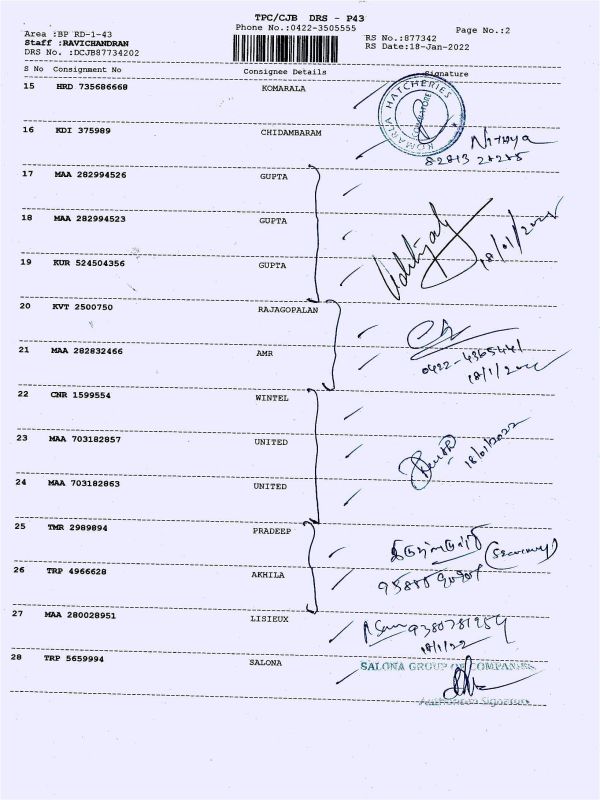 TPC/CJB DRS - P43
Area :BP RD-1-43 Phone No.:0422-3505555 Page No.:2
Staff :RAVICHANDRAN RS No.:877342
DRS No. :DCJB87734202 RS Date:18-Jan-2022
S No Consignment No Consignee Details Signature
15 HRD 735686668 KOMARALA
KOMARLA HATCHERIES
COIMBATORE
16 KDI 375989 CHIDAMBARAM
Nithya
17 MAA 282994526 GUPTA
18 MAA 282994523 GUPTA
19 KUR 524504356 GUPTA
20 KVT 2500750 RAJAGOPALAN
21 MAA 282832466 AMR
22 CNR 1599554 WINTEL
23 MAA 703182857 UNITED
18/01/2022
24 MAA 703182863 UNITED
25 TMR 2989894 PRADEEP
26 TRP 4966628 AKHILA
27 MAA 280028951 LISIEUX
18/1/22
28 TRP 5659994 SALONA
SALONA GROUP OF COMPANIES